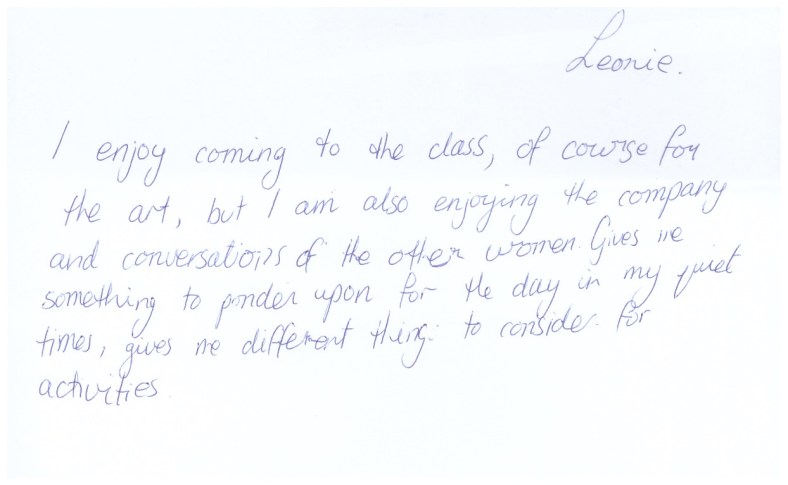 Leonie.
I enjoy coming to the class, of course for
the art, but I am also enjoying the company
and conversations of the other women. Gives me
something to ponder upon for the day in my quiet
times, gives me different things to consider. for
activities.